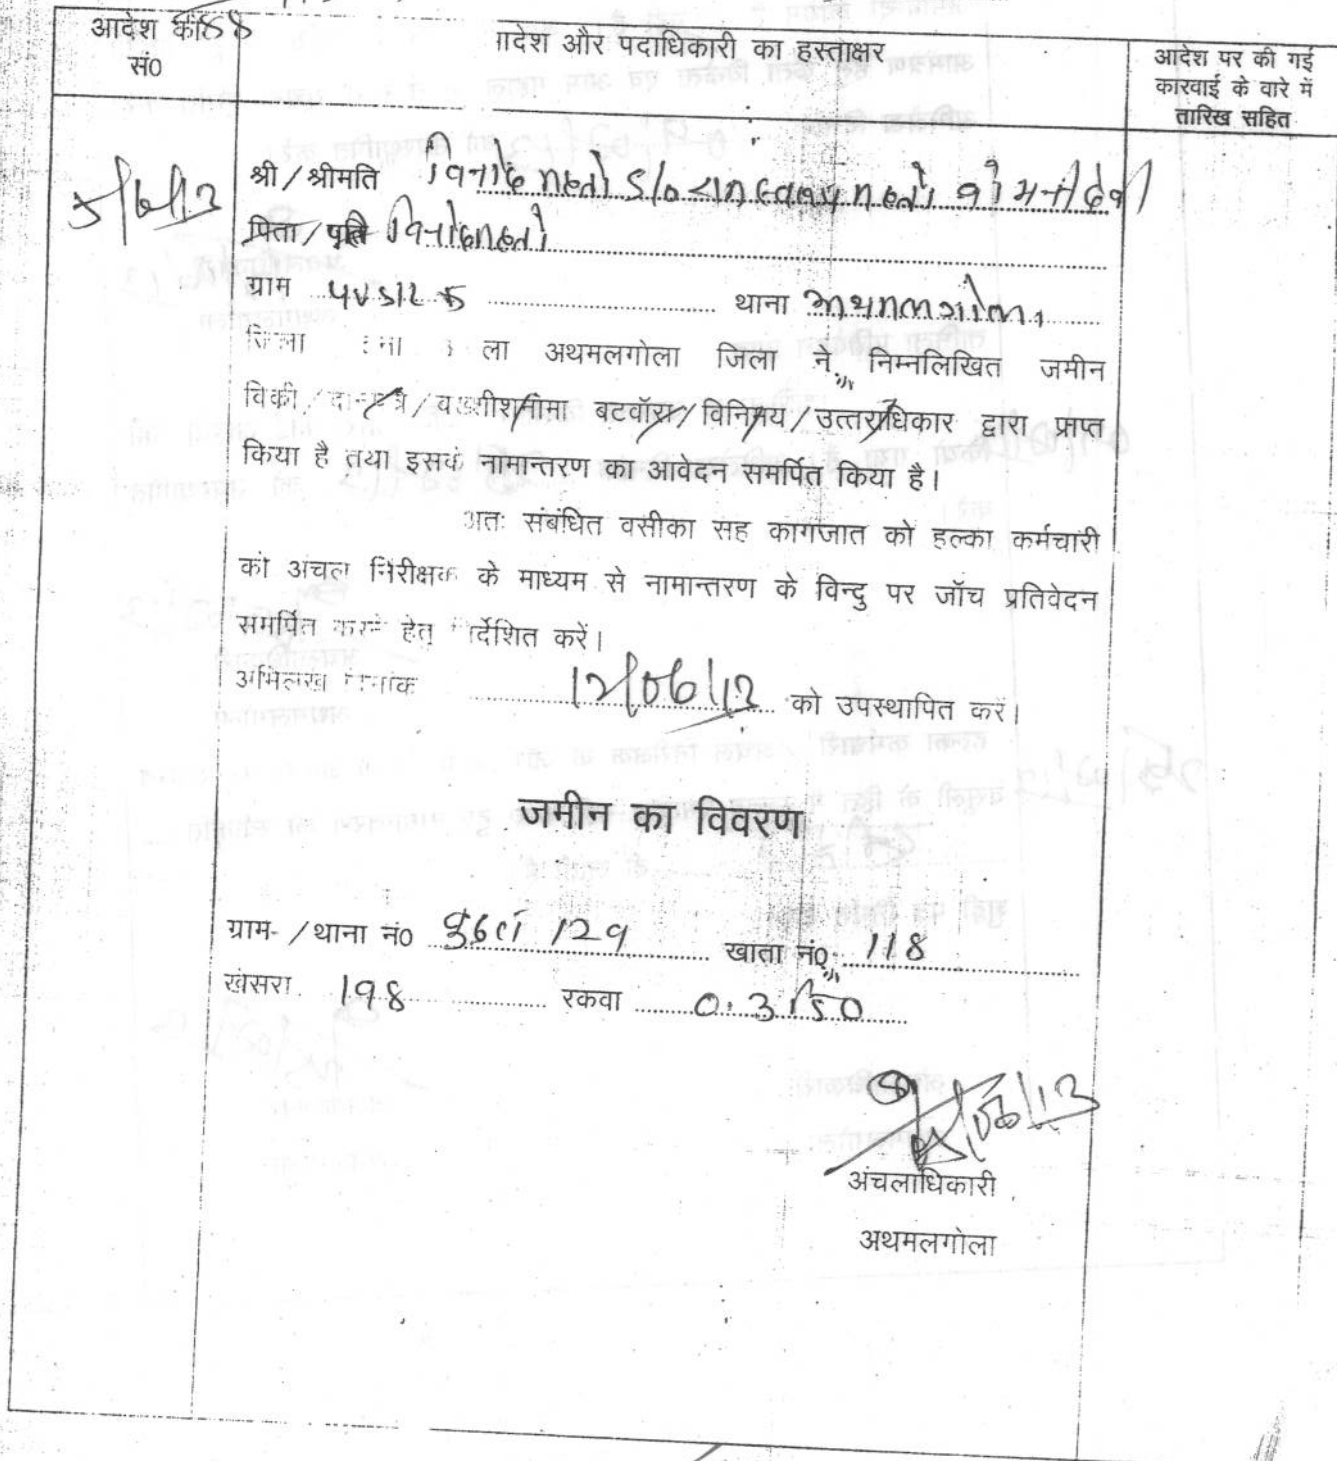 आदेश की 58
सं0
आदेश और पदाधिकारी का हस्ताक्षर
आदेश पर की गई
कारवाई के वारे में
तारिख सहित
5/6/13
श्री/श्रीमति विनोद महतो S/o महतो देवी
पिता/पति विनोद महतो
ग्राम थाना अथमलगोला
जिला ला अथमलगोला जिला ने निम्नलिखित जमीन
विकी/दानपत्र/वख्शीशनामा बटवॉरा/विनिमय/उत्तराधिकार द्वारा प्राप्त
किया है तथा इसके नामान्तरण का आवेदन समर्पित किया है।
अतः संबंधित वसीका सह कागजात को हल्का कर्मचारी
को अंचल निरीक्षक के माध्यम से नामान्तरण के विन्दु पर जॉच प्रतिवेदन
समर्पित करने हेतु निर्देशित करें।
अभिलेख दिनांक 12/06/13 को उपस्थापित करें।
जमीन का विवरण
ग्राम- /थाना नं0 129 खाता नं0 118
खेसरा 198 रकवा
05/06/13
अंचलाधिकारी
अथमलगोला